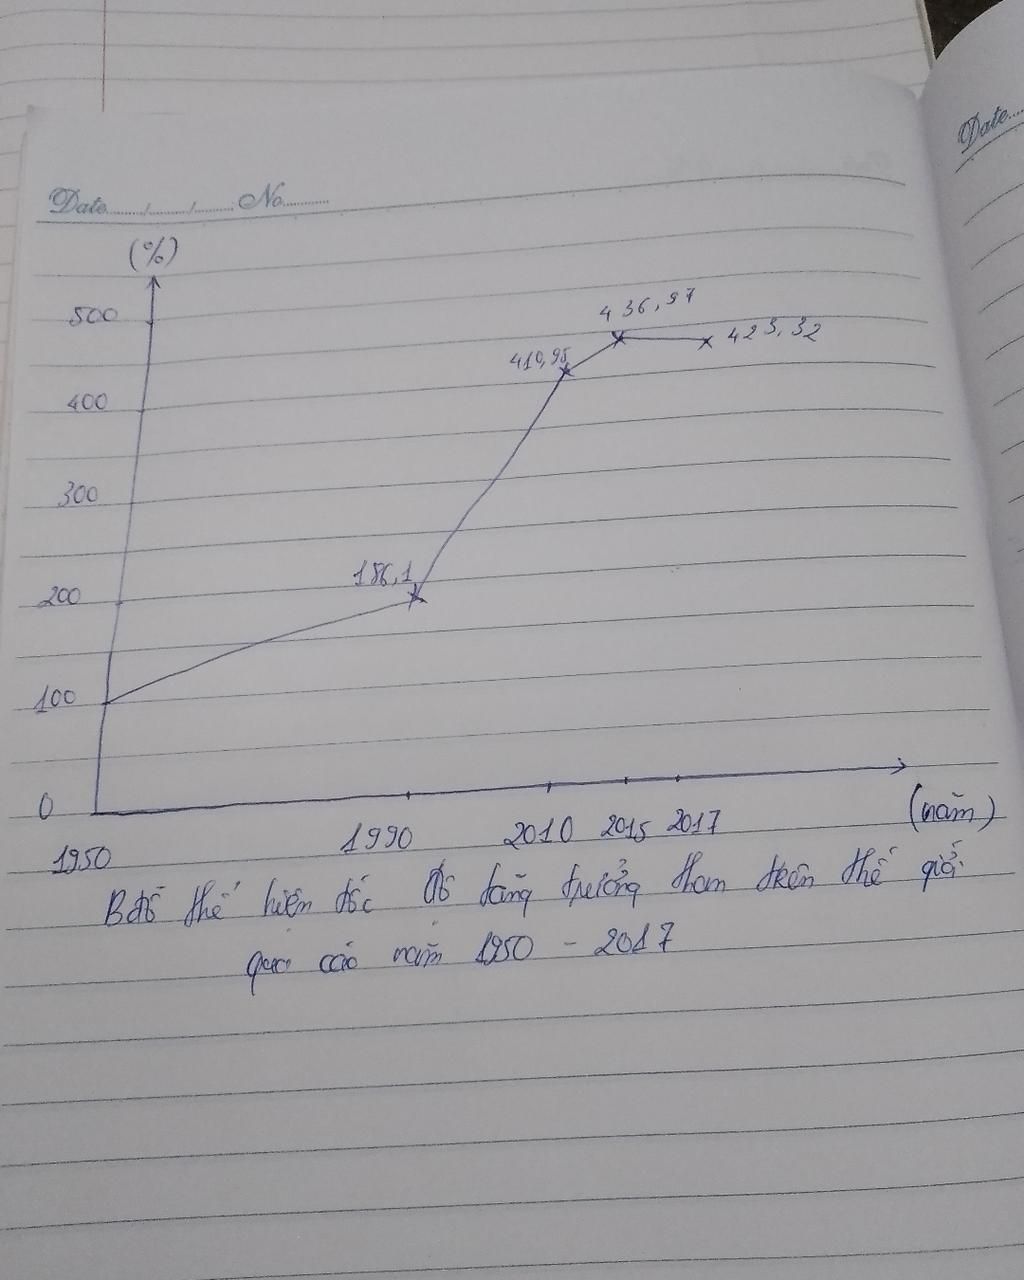 Date....../....../...... No.........
Date....
(%)
500
436,97
423,32
410,95
400
300
186,1
200
100
0
1950 1990 2010 2015 2017 (năm)
Bđồ thể hiện tốc độ tăng trưởng than trên thế giới
qua các năm 1950 - 2017